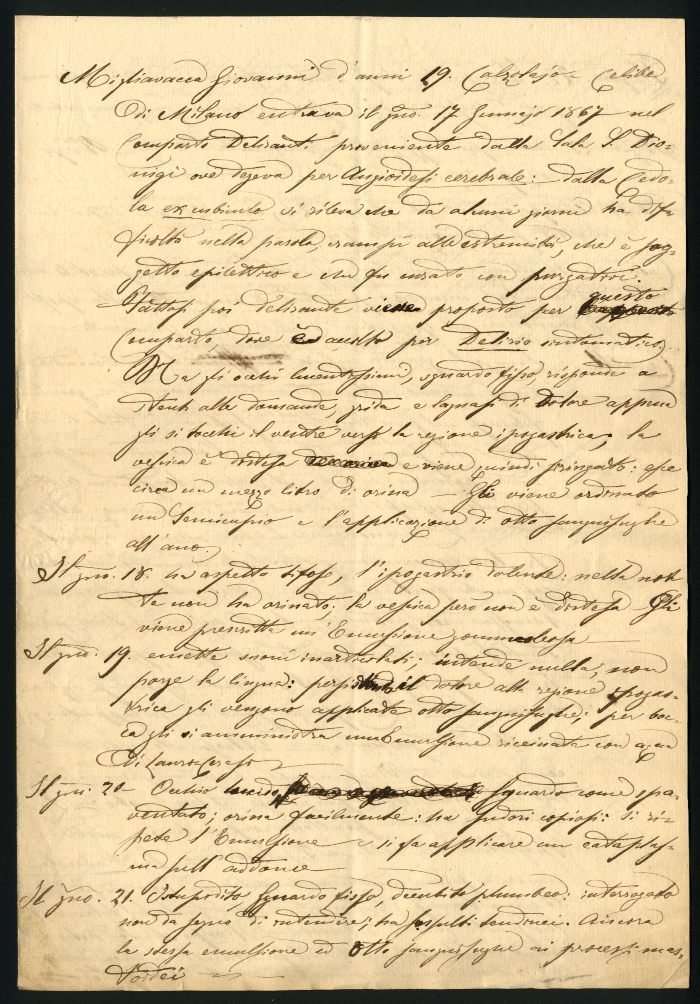 Migliavacca Giovanni d'anni 19. Calzolajo - Celibe
di Milano entrava il gno. 17 Gennajo 1867 nel
Comparto Deliranti proveniente dalla Sala S. Dio-
nigi ove degeva per Angioidesi cerebrale: dalla Cedo-
la ex cubiculo si rileva che da alcuni giorni ha diffi
coltà nella parola, crampi alle estremità, che è sog-
getto epilettico e che fu curato con purgativi.
Fattosi poi delirante viene proposto per questo
Comparto, dove è accolto per Delirio sintomatico.
Ha gli occhi lucentissimi, sguardo fisso, risponde a
stenti alle domande, grida e lagnasi di dolore appena
gli si tocchi il ventre verso la regione ipogastrica; la
vescica è distesa e viene quindi siringato: esce
circa un mezzo litro di orina — Gli viene ordinato
un Semicupio e l'applicazione di otto sanguisughe
all'ano.
Il gno. 18. ha aspetto tifoso, l'ipogastrio dolente: nella not
te non ha orinato; la vescica però non è distesa. Gli
viene prescritta un'Emulsione gommosa
Il gno. 19. emette suoni inarticolati; intende nulla, non
porge la lingua: persiste il dolore alla regione ipogas-
trica gli vengono applicate otto sanguisughe: per boc-
ca gli si amministra un'Emulsione ricinata con acqua
di Lauro ceraso
Il gno. 20 Occhio lucido, sguardo come spa-
ventato; orina facilmente: ha sudori copiosi: si ri-
pete l'Emulsione e si fa applicare un cataplas-
ma sull'addome
Il gno. 21. Istupidito sguardo fisso, decubito plumbeo: interrogato
non dà segno di intendere; ha sussulti tendinei. Ancora
la stessa emulsione ed otto sanguisughe ai processi mas-
toidei